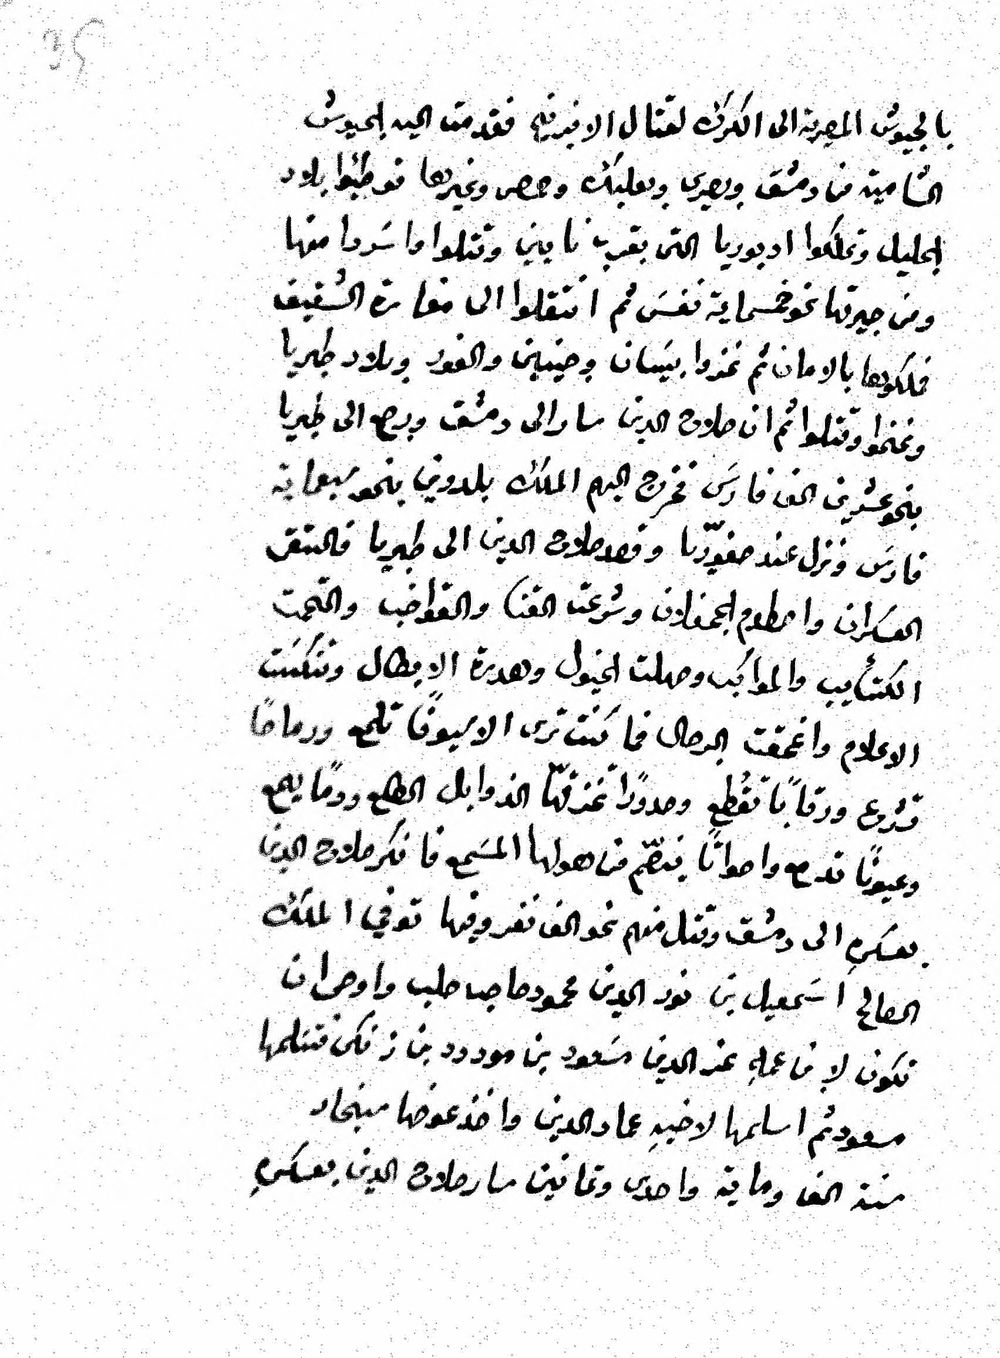 35
بالجيوش المصرية الى الكرك لقتال الافرنج فقدمت اليه الجيوش
الشامية من دمشق وبصرى وبعلبك وحمص وغيرها توطيوا بلاد
الجليل وتملكوا ادبوريا التي بقرب نايين وقتلوا واسروا منها
ومن جيرتها نحو خمسماية نفس ثم انتقلوا الى مغارة الشقيف
فملكوها بالامان ثم غزوا بيسان وجينين والغور وبلاد طبريا
وغنموا وقتلوا ثم ان صلاح الدين سار الى دمشق ورجع الى طبريا
بنحو عشرين الف فارس فخرج اليهم الملك بلدوين بنحو سبعماية
فارس ونزل عند صفوريا وقصد صلاح الدين الى طبريا فالتقى
العسكران واصطدم الجحفلان وشرعت القنا والقواضب والتحمت
الكتايب والمواكب وصهلت الخيول وهدرة الابطال وتنكست
الاعلام وانمحقت الرجال فما كنت ترى الا سيوفًا تلمع ورماحًا
تشرع ورقابًا تقطع وصدورًا تخرقها الذوابل الطلع ودمًا يهمع
وعيونًا تدمع واصواتًا ينصم من هولها المسمع فانكر صلاح الدين
بعسكره الى دمشق وقتل منهم نحو الف نفر وفيها توفي الملك
الصالح اسمعيل بن نور الدين محمود صاحب حلب واوصى ان
تكون لابن عمه عز الدين مسعود بن مودود بن زنكى فتسلمها
مسعود ثم اسلمها لاخيه عماد الدين واخذ عوضها سنجار
سنة الف وماية واحدى وثمانين سار صلاح الدين بعسكره